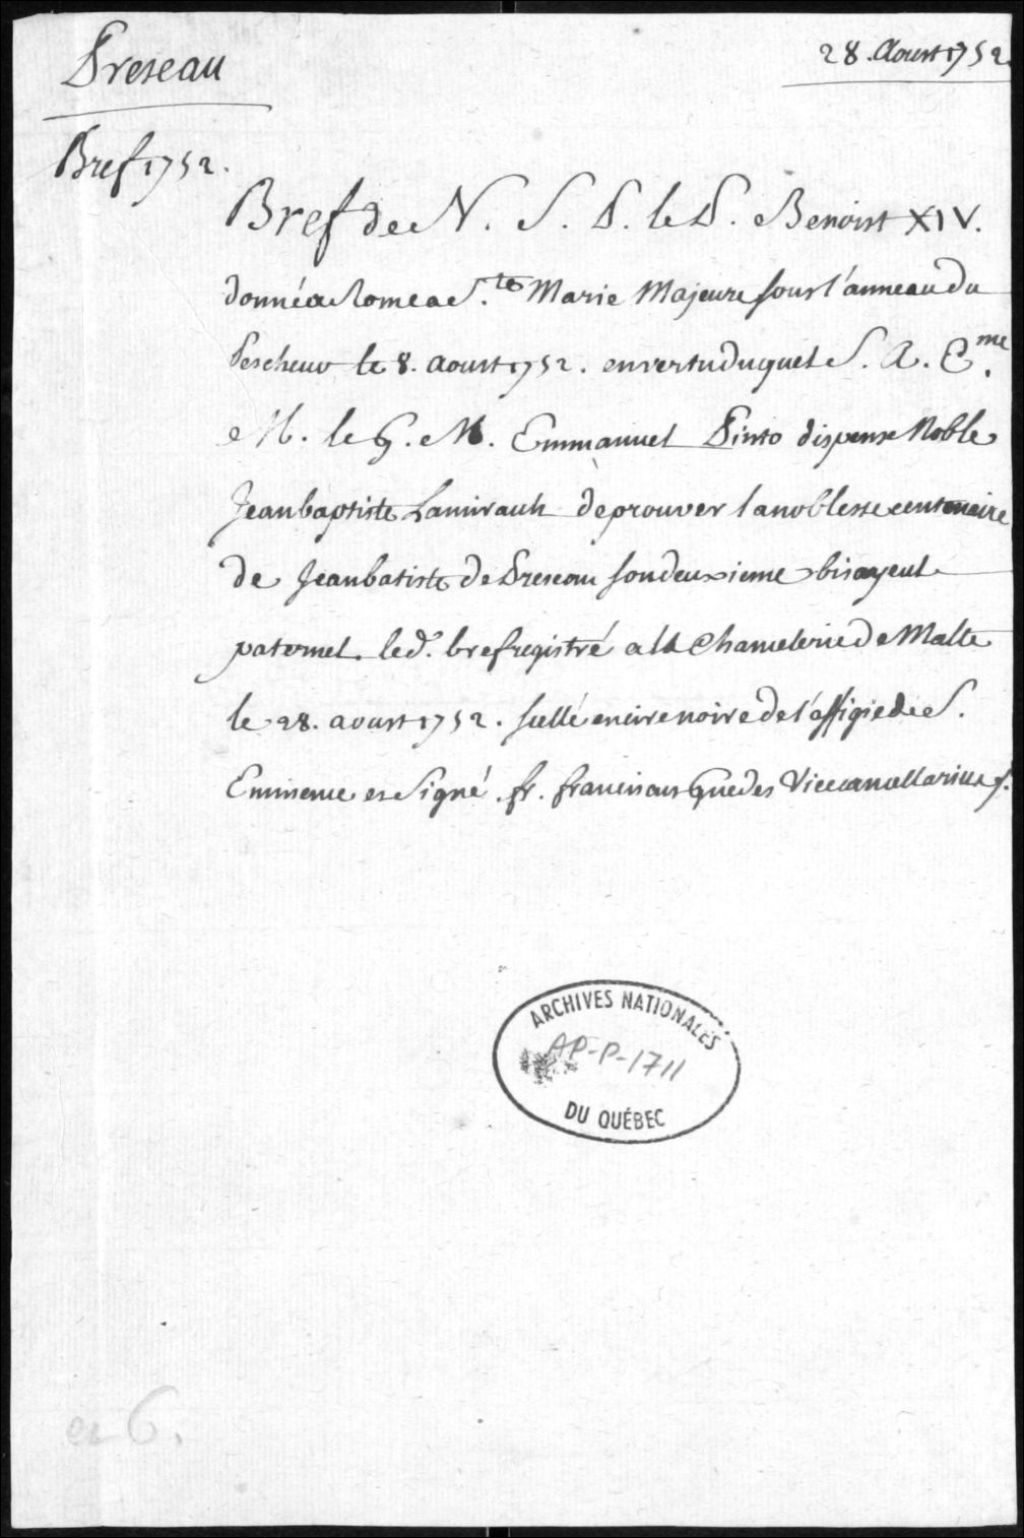 Preseau
28. Aoust 1752
Bref 1752.
Bref de N. S. P. le P. Benoist XIV.
donné a Rome a S.te Marie Majeure sous l'anneau du
Pescheur le 8. aoust 1752. en vertu duquel S. A. E.me
M. le G. M. Emmanuel Pinto dispense Noble
Jean baptiste Lamirault de prouver la noblesse centenaire
de Jean batiste de Preseau son deuxieme bisayeul
paternel. led. bref registré a la Chancelerie de Malte
le 28. aoust 1752. scellé en cire noire de l'effigie de S.
Eminence et Signé. fr. franciscus Guedes Vicecancellarius
ARCHIVES NATIONALES
AP-P-1711
DU QUÉBEC
6.